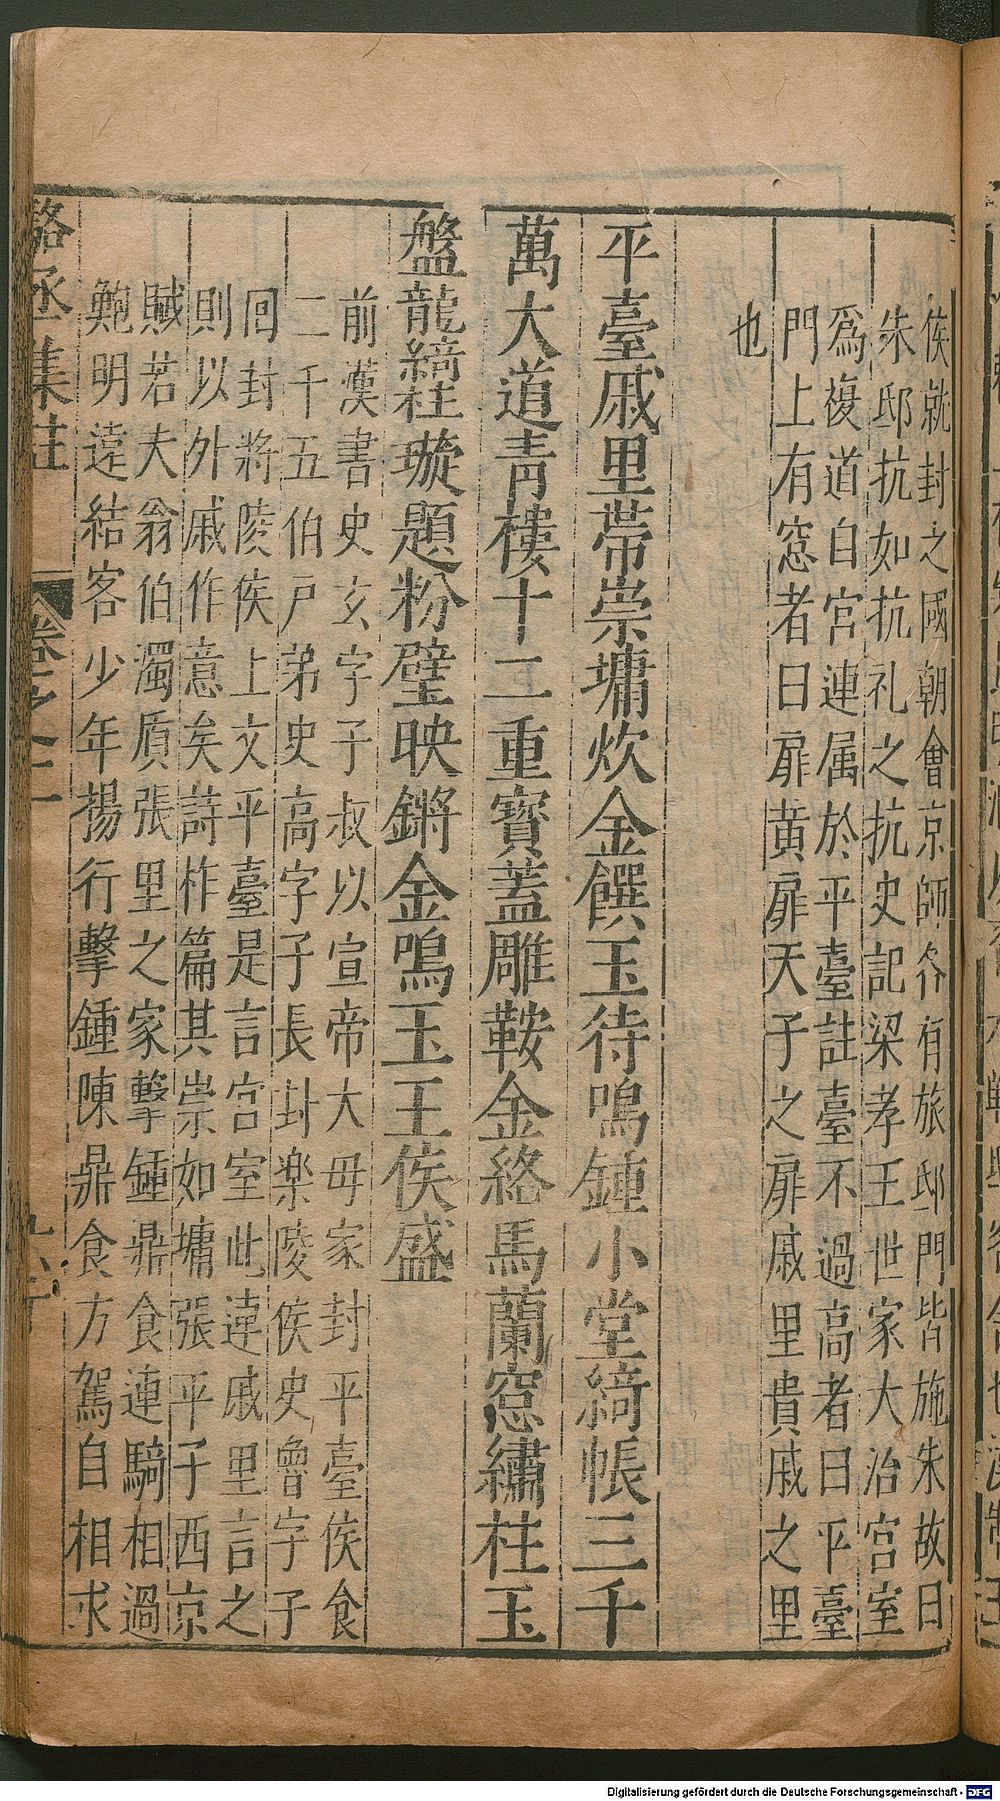 侯就封之國朝會京師各有旅邸門皆施朱故曰
朱邸抗如抗礼之抗史記梁孝王世家大治宮室
爲複道自宮連属於平臺註臺不過高者曰平臺
門上有窓者曰扉黄扉天子之扉戚里貴戚之里
也
平臺戚里帶崇墉炊金饌玉待鳴鍾小堂綺帳三千
萬大道青樓十二重寶蓋雕鞍金絡馬蘭窓繡柱玉
盤龍綺柱璇題粉壁映鏘金鳴玉王侯盛
前漢書史玄字子叔以宣帝大母家封平臺侯食
二千五伯戸弟史高字子長封楽陵侯史曾字子
回封將陵侯上文平臺是言宮室此連戚里言之
則以外戚作意矣詩柞篇其崇如墉張平子西京
賦若夫翁伯濁質張里之家擊鍾鼎食連騎相過
鮑明遠結客少年揚行擊鍾陳鼎食方駕自相求
駱丞集註
卷之二
Digitalisierung gefördert durch die Deutsche Forschungsgemeinschaft - DFG